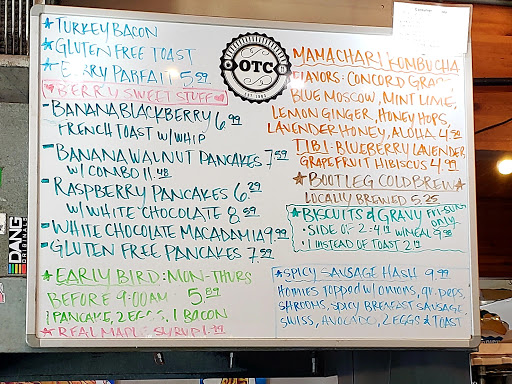 ★ TURKEY BACON
★ GLUTEN FREE TOAST
★ BERRY PARFAIT 5.59
♥ BERRY SWEET STUFF ♥
- BANANA BLACKBERRY 6.99
FRENCH TOAST W/ WHIP
- BANANA WALNUT PANCAKES 7.59
W/ COMBO 11.48
- RASPBERRY PANCAKES 6.29
W/ WHITE CHOCOLATE 8.59
- WHITE CHOCOLATE MACADAMIA 9.99
- GLUTEN FREE PANCAKES 7.59
★ EARLY BIRD: MON-THURS
BEFORE 9:00AM 5.89
1 PANCAKE, 2 EGGS, 1 BACON
★ REAL MAPLE SYRUP 1.39
OTC
MANACHARI KOMBUCHA
FLAVORS: CONCORD GRAPE,
BLUE MOSCOW, MINT LIME,
LEMON GINGER, HONEY HOPS,
LAVENDER HONEY, ALOHA 4.50
TIBI - BLUEBERRY LAVENDER,
GRAPEFRUIT HIBISCUS 4.99
★ BOOTLEG COLD BREW ★
LOCALLY BREWED 5.25
★ BISCUITS & GRAVY FRI-SUN
ONLY
• SIDE OF 2 - 4.19 W/ MEAL 9.98
• 1 INSTEAD OF TOAST 2.19
★ SPICY SAUSAGE HASH 9.99
HOMIES TOPPED W/ ONIONS, GR. PEPS,
SHROOMS, SPICY BREAKFAST SAUSAGE,
SWISS, AVOCADO, 2 EGGS & TOAST
DANG
ORIGINALS